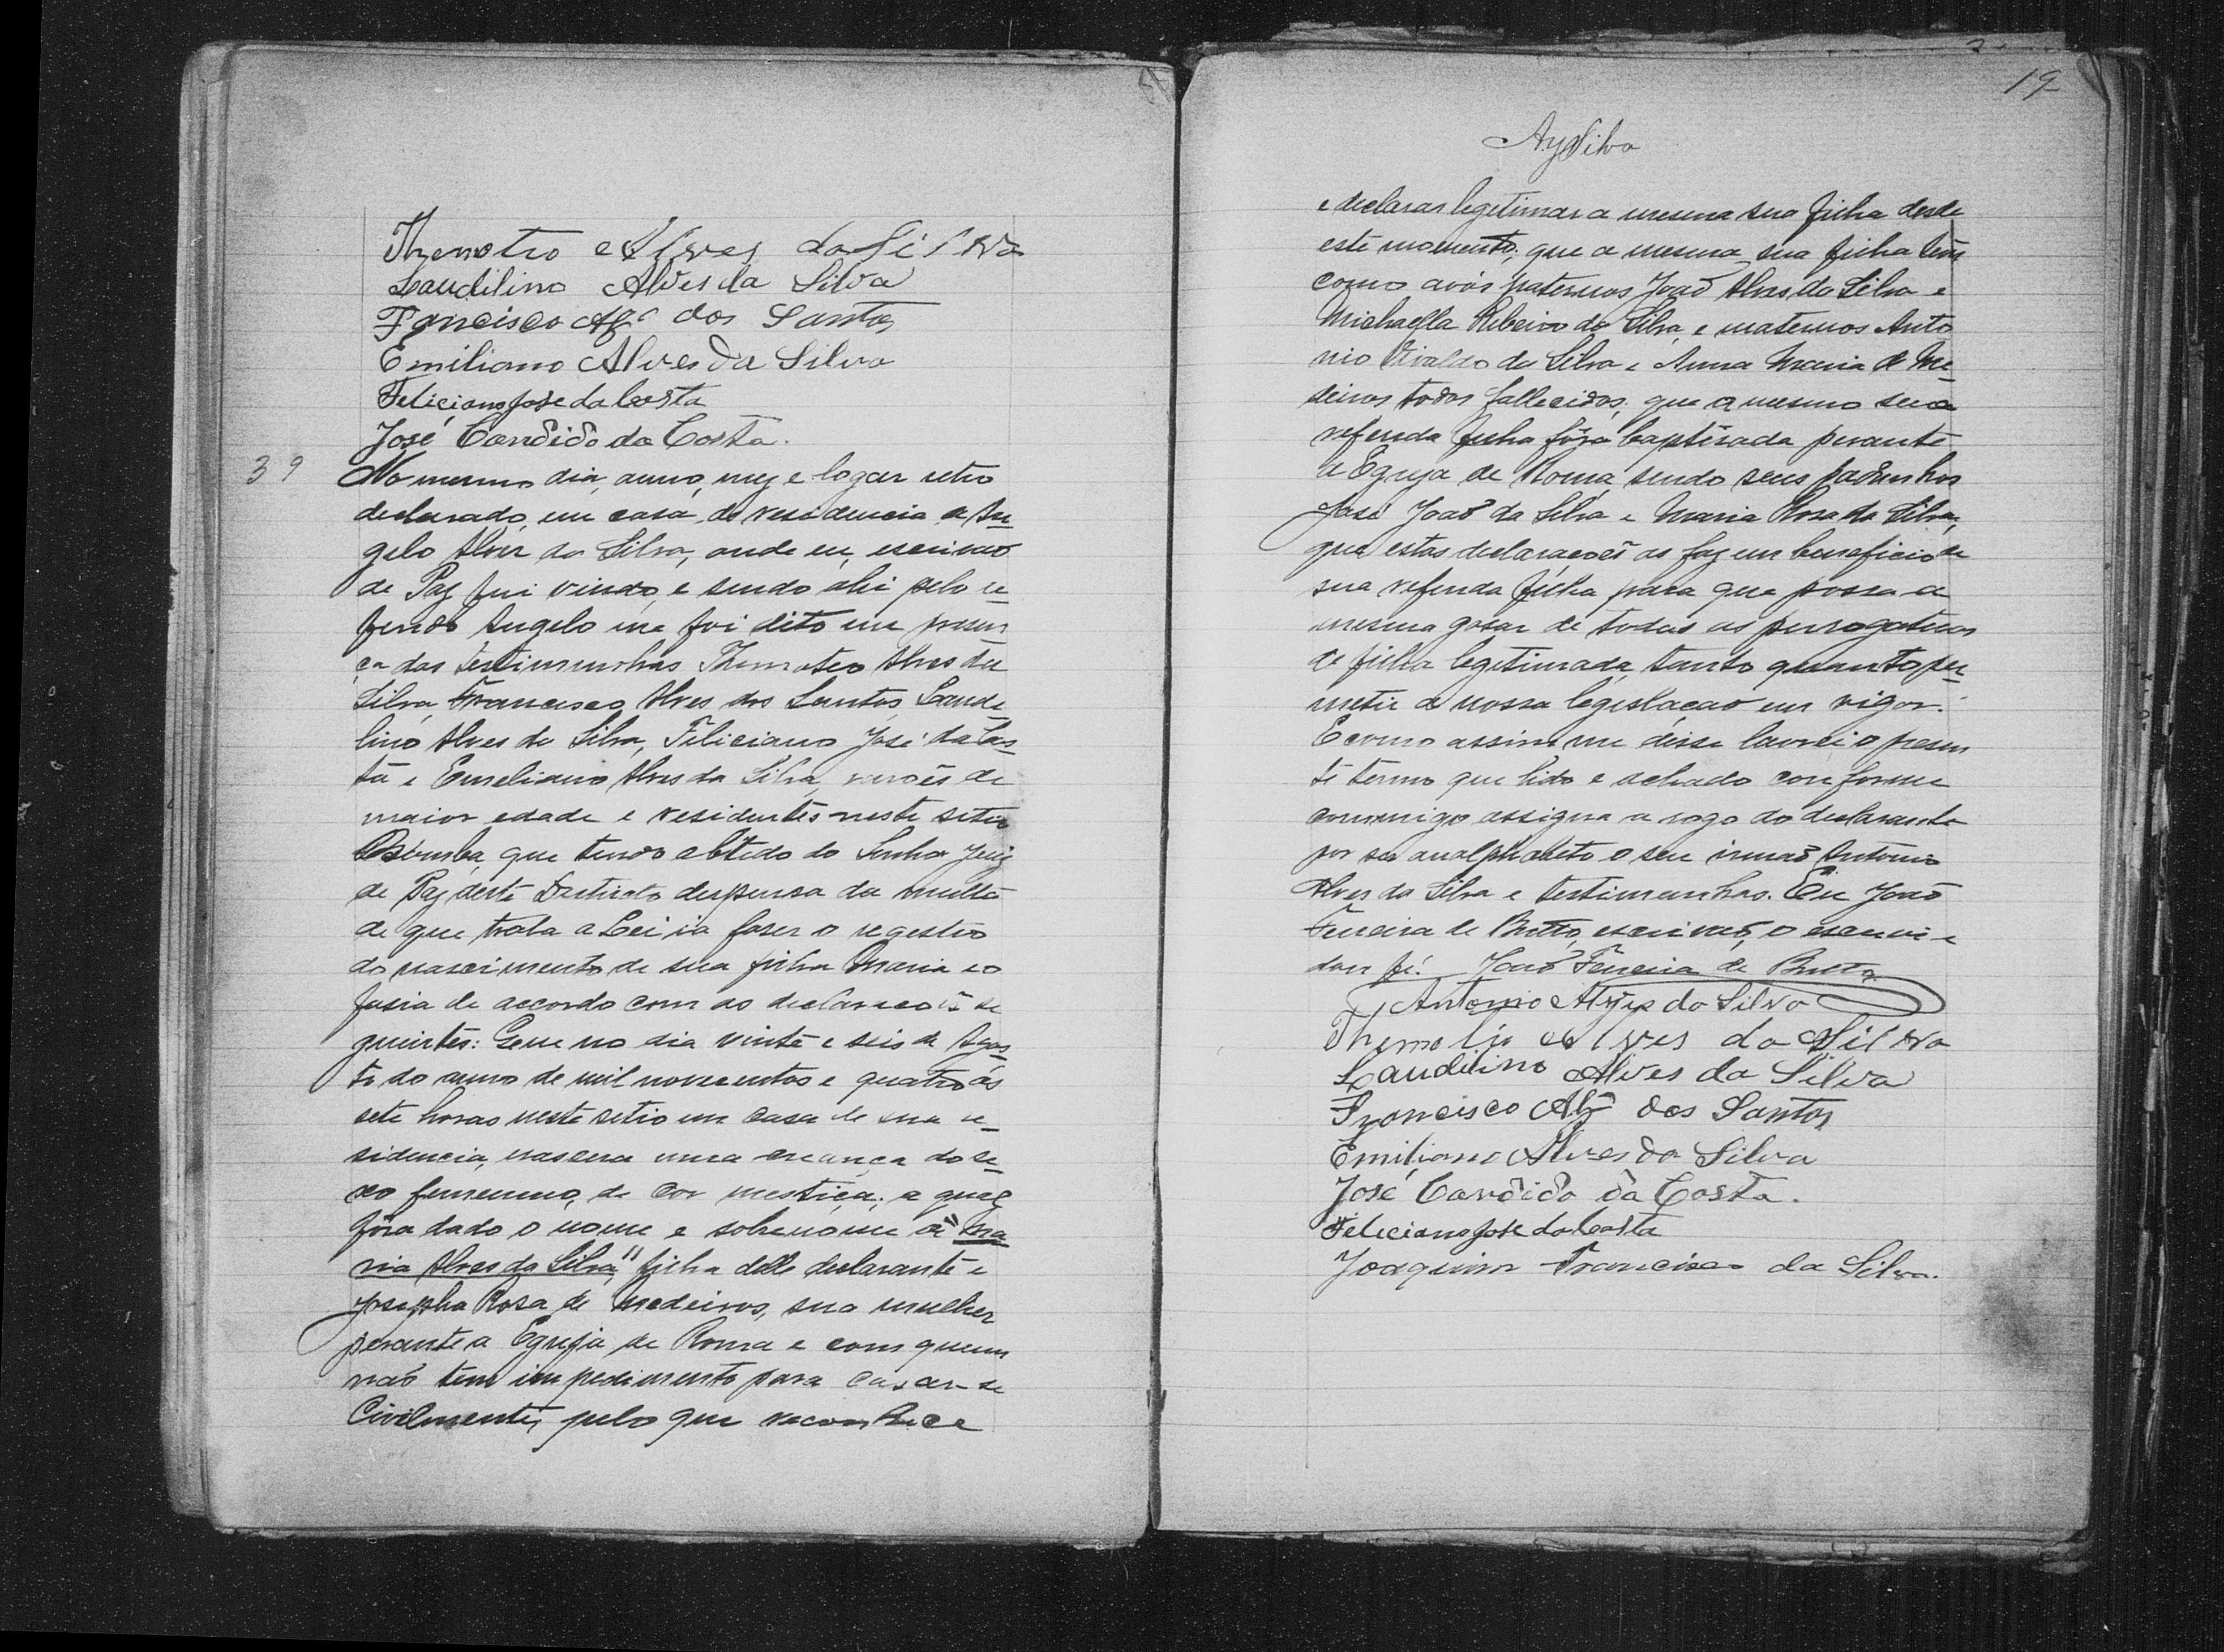 Themotio Alves da Silva
Laudilino Alves da Silva
Francisco Alz dos Santos
Emiliano Alves da Silva
Feliciano José da Costa
José Candido da Costa.
39 No mesmo dia, anno, mez e logar retro
declarado, em casa de residencia de An-
gelo Alves da Silva, onde eu, escrivão
de Paz fui vindo, e sendo ahi pelo re-
ferido Angelo me foi dito em presen
ça das testimunhas Themoteo Alves da
Silva, Francisco Alves dos Santos, Laude
lino Alves da Silva, Feliciano José da Cos-
ta e Emeliano Alves da Silva, varoẽs de
maior edade e residentes neste setio
que tendo obtido do Senhor Juiz
de Paz deste Destricto despensa da multa
de que trata a Lei ia faser o registro
do nascimento de sua filha Maria e o
fasia de accordo com as declaracoẽs se
guintes: Que no dia vinte e seis de Agos-
to do anno de mil novecentos e quatro ás
sete horas neste setio em casa de sua re-
sidencia, nascera uma creança do se-
xo femenino, de cor mestiça, a qual
fôra dado o nome e sobrenome de "Ma
ria Alves da Silva," filha delle declarante e
Josepha Rosa de Medeiros, sua mulher
perante a Egreja de Roma e com quem
não tem impedimento para casar-se
Civilmente, pelo que reconhece
19
AySilva
e declaras legitimar a mesma sua filha desde
este momento; que a mesma sua filha tem
como avós paternos João Alves da Silva e
Michaella Ribeiro da Silva, e maternos Anto
nio Vivaldo da Silva e Anna Maria de Me-
deiros todos fallecidos; que a mesmo sua
referida filha fôra baptisada perante
a Egreja de Roma sendo seus padrinhos
José João da Silva e Maria Rosa da Silva,
que estas declaracoẽs as faz em beneficio de
sua referida filha para que possa a
mesma gosar de todas as perrogativas
de filha legitimada, tanto quanto per-
metir a nossa legislação em vigor.
E como assim me disse lavrei o presen
te termo que lido e achado conforme
commigo assigna a rogo do declarante
por ser analphabeto o seu irmão Antonio
Alves da Silva e testimunhas. Eu João
Ferreira de Britto, escrivaõ, o escrevi e
dou fé. João Ferreira de Britto
Antonio Alves da Silva
Themotio Alves da Silva
Laudilino Alves da Silva
Francisco Alz dos Santos
Emiliano Alves da Silva
José Candido da Costa.
Feliciano José da Costa
Joaquim Francisco da Silva.